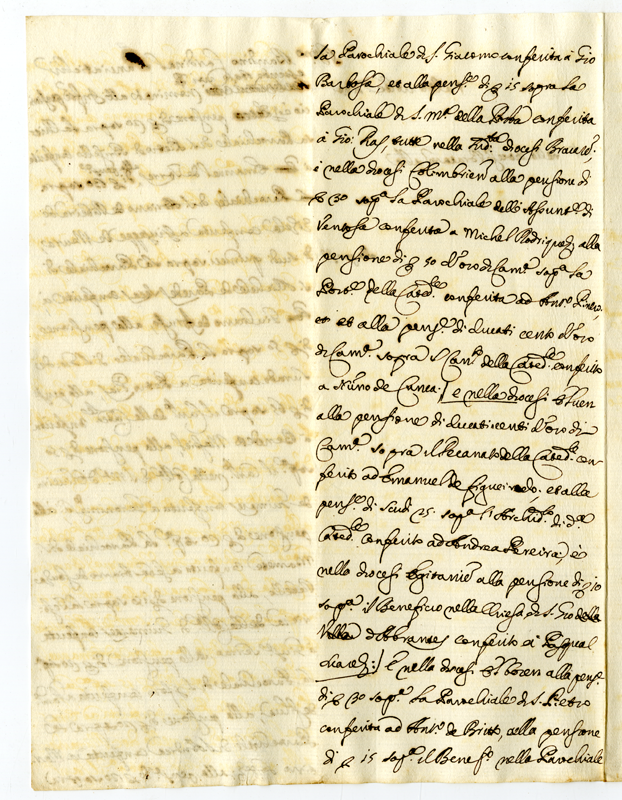 la Parochiale di S. Giacomo conferita à Gio
Barbosa, et alla pens.e di 15 sopra la
Parochiale di S. M.a della Porta conferita
à Gio: tutte nella diocesi
e nella diocesi Colimbrien alla pensione di
30 sop.a la Parochiale dell' Assunt.e di
Ventosa conferita a Michel Rodriguez alla
pensione di 50 d'oro di Cam.a sop.a la
della Cated.le conferita ad Ant.o
et alla pens.e di ducati cento d'oro
di Cam.a sopra della Cated.le conferito
a Nuno de : e nella diocesi
alla pensione di ducati centi d'oro di
Cam.a sopra il Decanato della Cated.le con-
ferito ad Emanuel de Figueiredo; et alla
pens.e di Scudi 25 sop.a l'Archid.to di d.a
Cated.le conferito ad Andrea Pereira; è
nella diocesi Egitanien alla pensione di 10
sop.a il Beneficio nella Chiesa di S. Gio della
d'Abrantes conferito à Pasqual
: e nella diocesi alla pens.e
di 30 sop.a la Parochiale di S. Pietro
conferita ad Ant.o de Britto, alla pensione
di 15 sop.a il Benef.o nella Parochiale